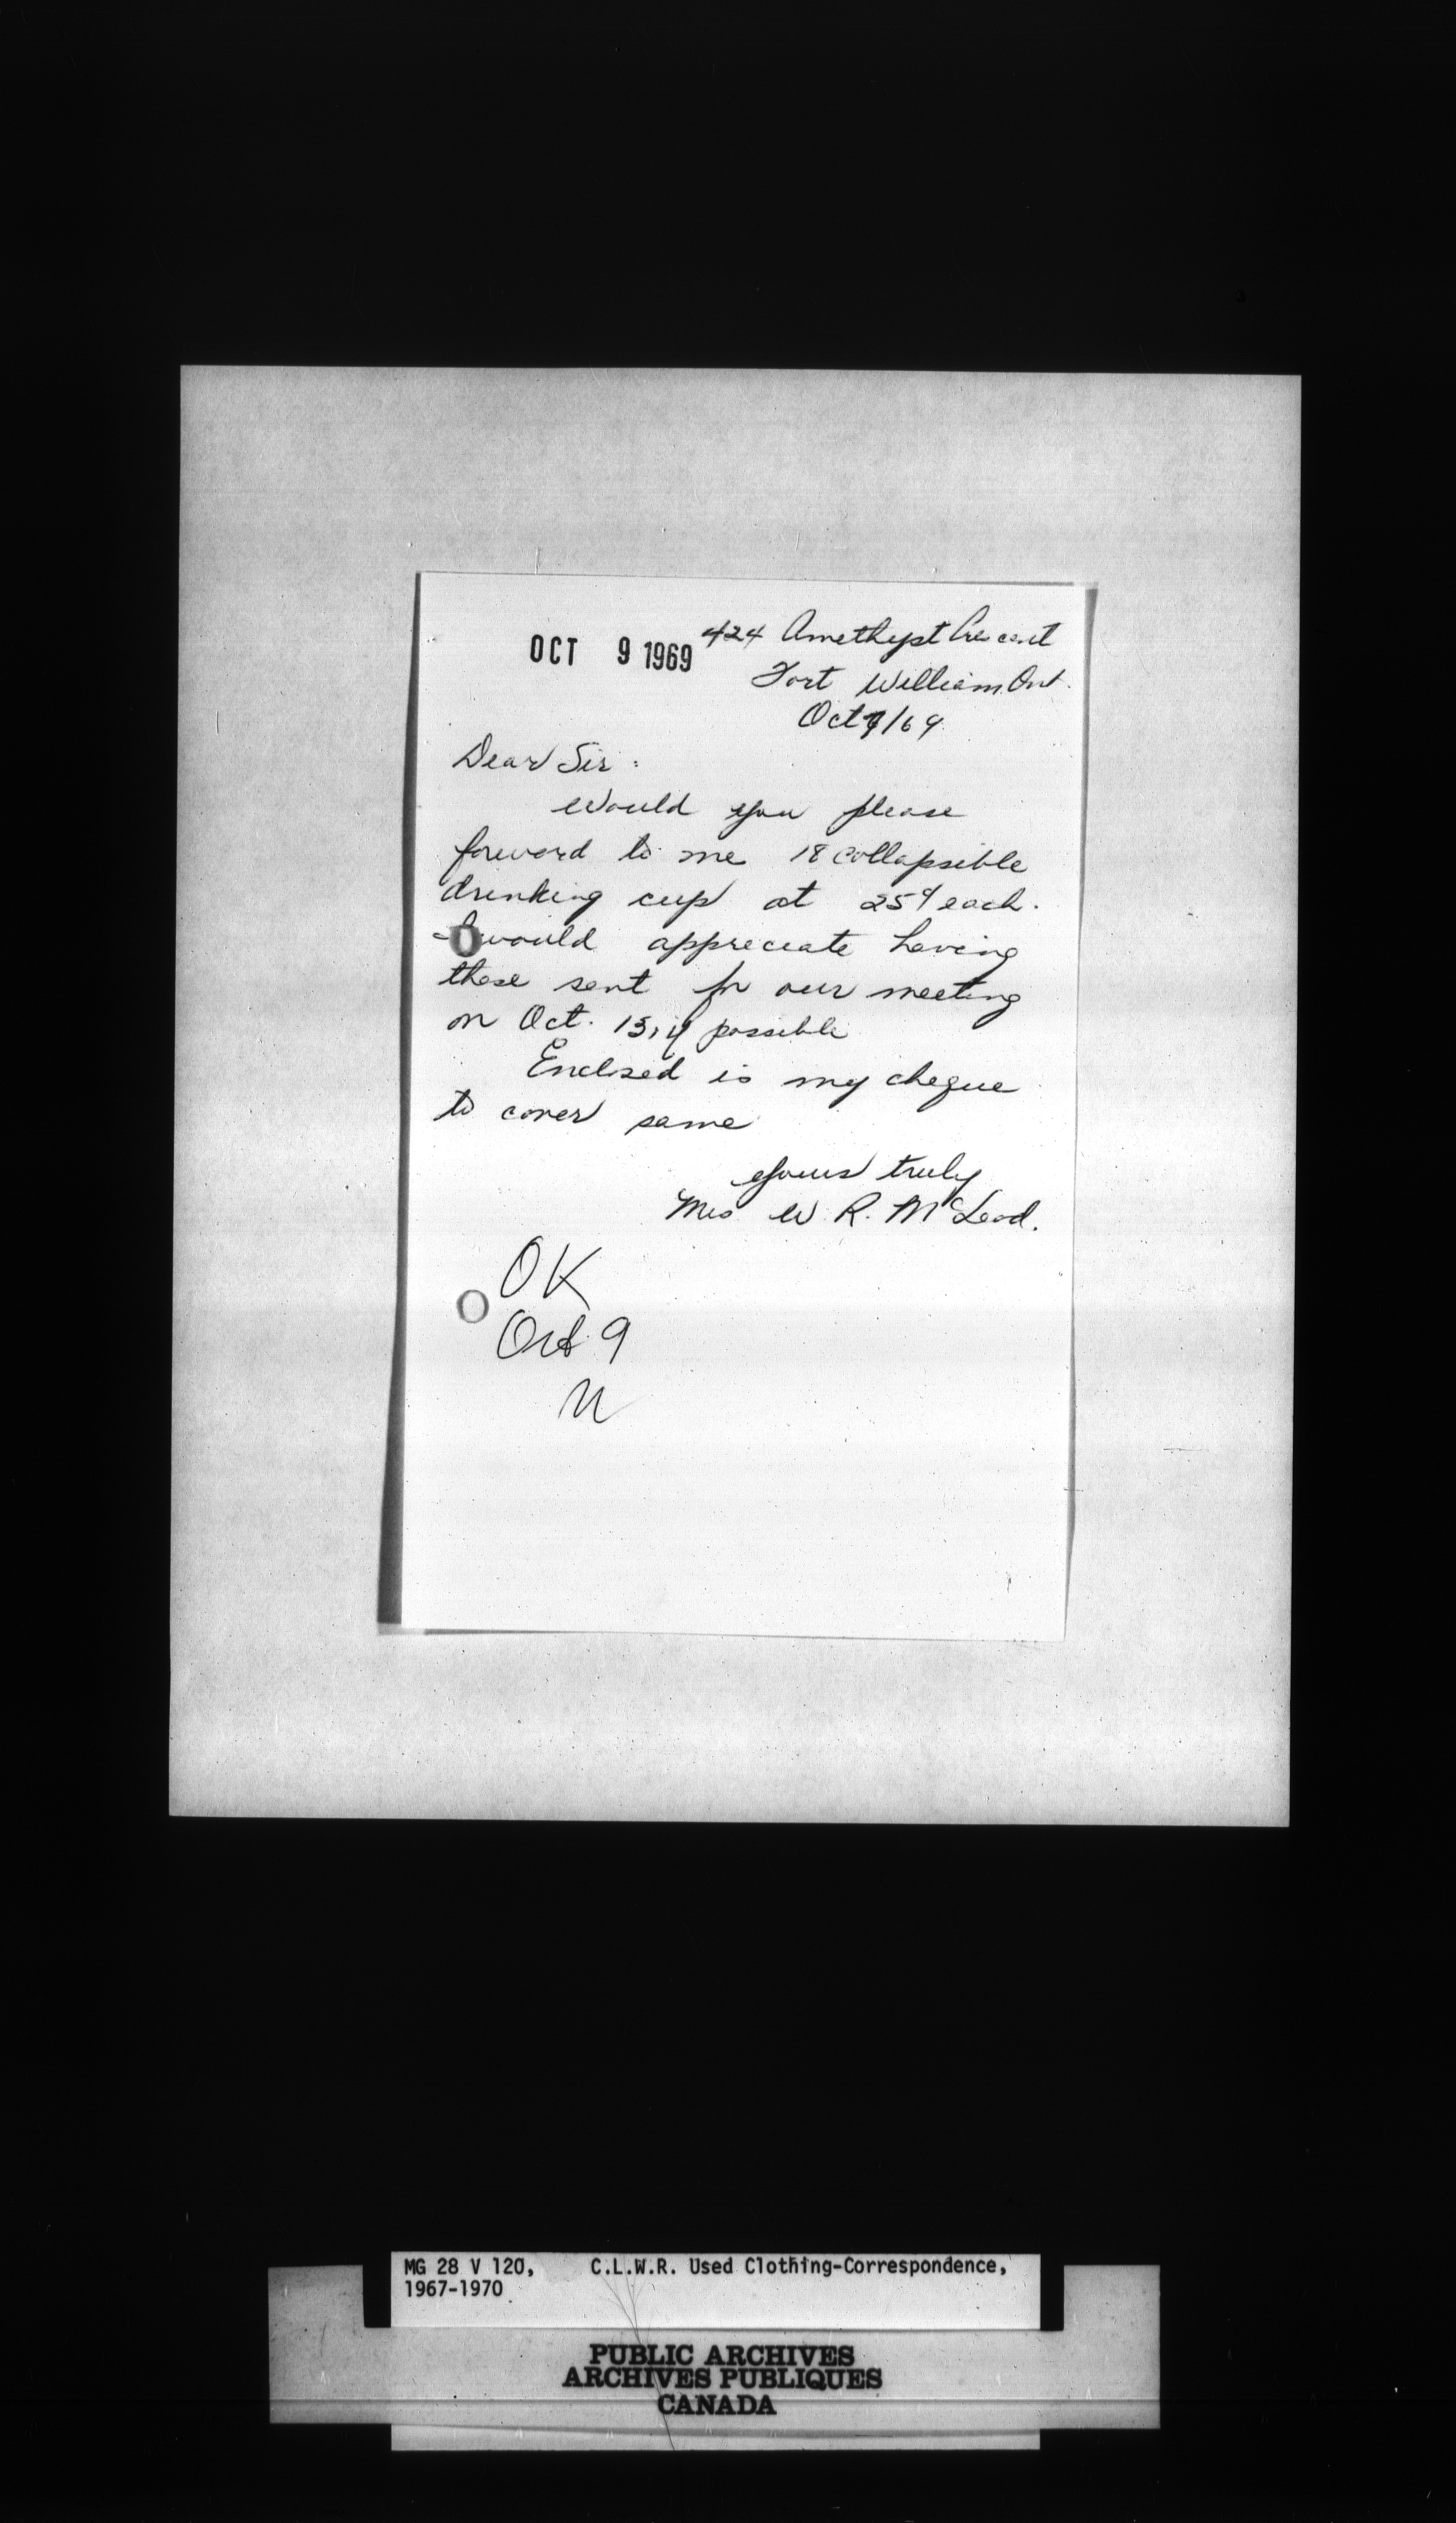 OCT 9 1969
424 Amethyst Crescent
Fort William Ont.
Oct 7/69
Dear Sir:
Would you please
forward to me 18 collapsible
drinking cup at 25¢ each.
I would appreciate having
these sent for our meeting
on Oct. 15, if possible
Enclosed is my cheque
to cover same
Yours truly
Mrs W. R. McLeod.
OK
Oct 9
MG 28 V 120, C.L.W.R. Used Clothing-Correspondence,
1967-1970
PUBLIC ARCHIVES
ARCHIVES PUBLIQUES
CANADA